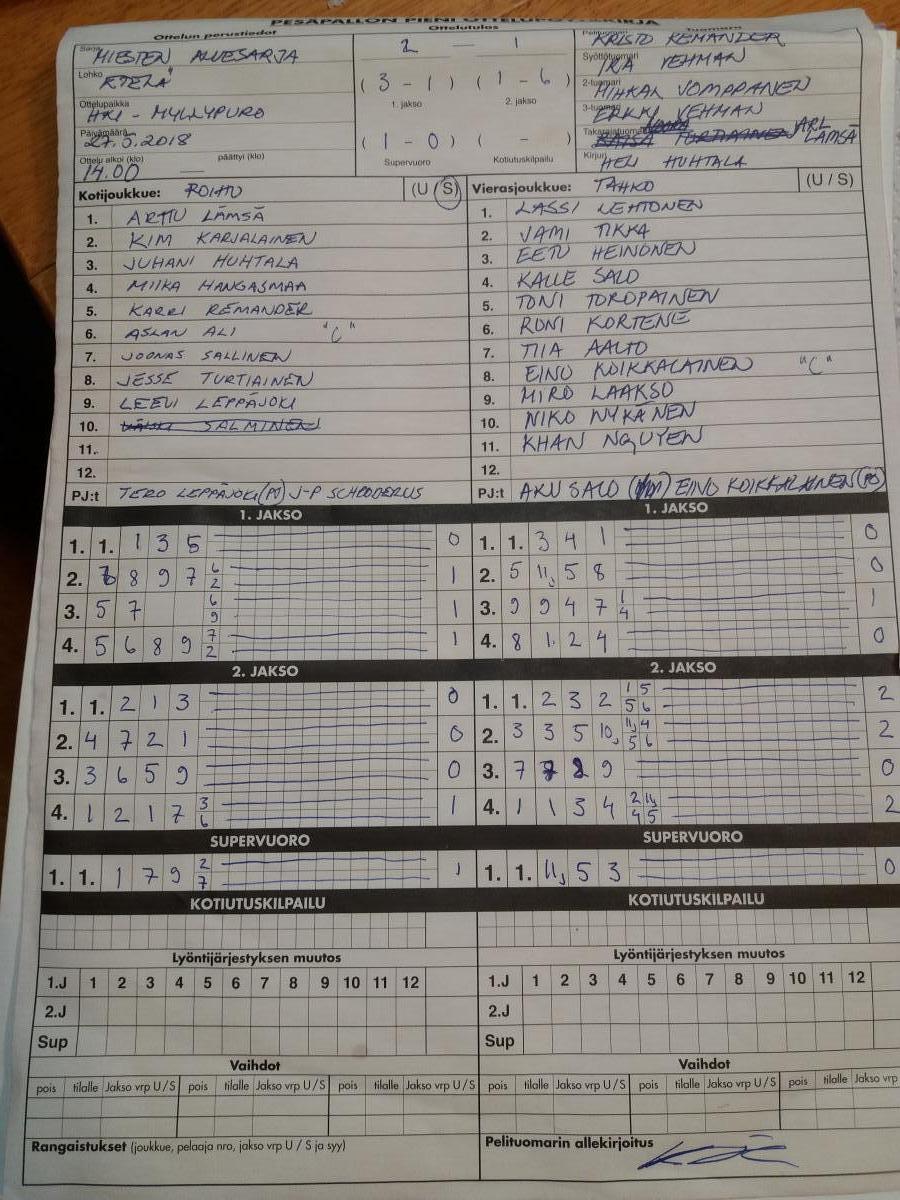 PESÄPALLON PIENI OTTELUPÖYTÄKIRJA
Ottelun perustiedot
Sarja
MIESTEN ALUESARJA
Lohko
ETELÄ
Ottelupaikka
HKI - MYLLYPURO
Päivämäärä
27.5.2018
Ottelu alkoi (klo) päättyi (klo)
14.00 —
Ottelutulos
2 — 1
( 3 - 1 ) ( 1 - 6 )
1. jakso 2. jakso
( 1 - 0 ) ( - )
Supervuoro Kotiutuskilpailu
Tuomarit
Pelituomari
KRISTO REMANDER
Syöttötuomari
VEHMAN
2-tuomari
MIHKAL VOMPPANEN
3-tuomari
ERKKI VEHMAN
Takarajatuomari
LÄMSÄ
Kirjuri
HELI HUHTALA
Kotijoukkue: ROIHU (U / S)
1. ARTTU LÄMSÄ
2. KIM KARJALAINEN
3. JUHANI HUHTALA
4. MIIKA HANGASMAA
5. KARRI REMANDER
6. ASLAN ALI "C"
7. JOONAS SALLINEN
8. JESSE TURTIAINEN
9. LEEVI LEPPÄJOKI
10. SALMINEN
11.
12.
PJ:t TERO LEPPÄJOKI (PJ) J-P SCHRODERUS
Vierasjoukkue: TAHKO (U / S)
1. LASSI LEHTONEN
2. JAMI TIKKA
3. EETU HEINONEN
4. KALLE SALO
5. TONI TOROPAINEN
6. RONI KORTENE
7. TIIA AALTO
8. EINO KOIKKALAINEN "C"
9. MIRO LAAKSO
10. NIKO NYKÄNEN
11. KHAN NGUYEN
12.
PJ:t AKU SALO EINO KOIKKALAINEN (PJ)
1. JAKSO
1. 1. 1 3 5 0
2. 8 9 7 6 2 1
3. 5 7 6 9 1
4. 5 6 8 9 7 2 1
1. JAKSO
1. 1. 3 4 1 0
2. 5 11, 5 8 0
3. 9 9 4 7 1 4 1
4. 8 1 2 4 0
2. JAKSO
1. 1. 2 1 3 0
2. 4 7 2 1 0
3. 3 6 5 9 0
4. 1 2 1 7 3 6 1
2. JAKSO
1. 1. 2 3 2 1 5 5 6 2
2. 3 3 5 10, 11, 4 5 6 2
3. 7 9 0
4. 1 1 3 4 2 11, 4 5 2
SUPERVUORO
1. 1. 1 7 9 2 7 1
SUPERVUORO
1. 1. 11, 5 3 0
KOTIUTUSKILPAILU
KOTIUTUSKILPAILU
Lyöntijärjestyksen muutos
1.J 1 2 3 4 5 6 7 8 9 10 11 12
2.J
Sup
Lyöntijärjestyksen muutos
1.J 1 2 3 4 5 6 7 8 9 10 11 12
2.J
Sup
Vaihdot
pois tilalle Jakso vrp U / S pois tilalle Jakso vrp U / S pois tilalle Jakso vrp U / S
Vaihdot
pois tilalle Jakso vrp U / S pois tilalle Jakso vrp U / S pois tilalle Jakso vrp
Rangaistukset (joukkue, pelaaja nro, jakso vrp U / S ja syy)
Pelituomarin allekirjoitus